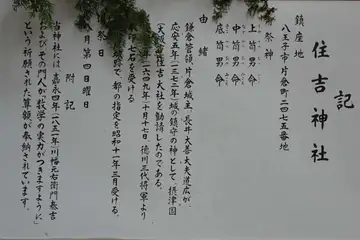 記
住吉神社
鎮座地
八王子市片倉町二四七五番地
祭神
上筒男命
中筒男命
底筒男命
由緒
鎌倉管領片倉城主、長井大善大夫道広が
応安五年(一三七二年)城の鎮守の神として、摂津国
住吉大社を勧請したのである。
一六四九年)十月十七日、徳川三代将軍より
七石を受ける
城跡で、都の指定を昭和十一年三月受ける。
祭日
月第四日曜日
附記
当神社には嘉永四年(一八五一年)川幡元右衛門泰吉
及びその門人が「数学の実力がつきますように」
という祈願された算額が奉納されています。